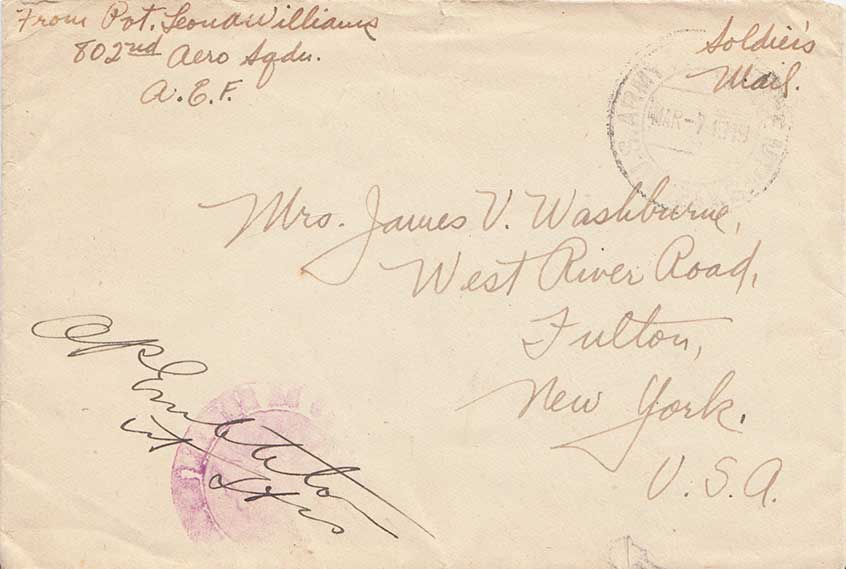 From Pvt. Leona Williams
802nd Aero Sqdn.
A.E.F.
Soldier's
Mail.
U.S. ARMY
MAR-7 1919
Mrs. James V. Washburne,
West River Road,
Fulton,
New York.
U.S.A.